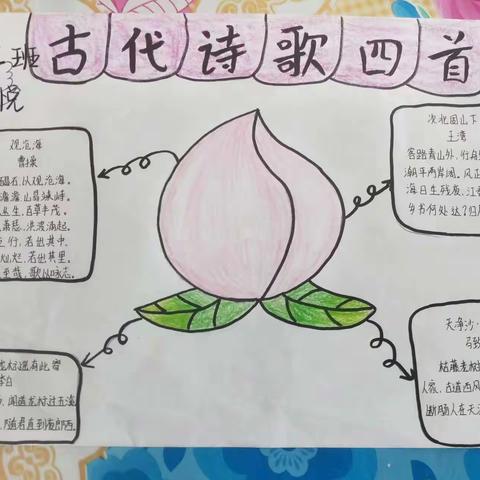 古代诗歌四首
班
悦
观沧海
曹操
碣石,以观沧海。
澹澹,山岛竦峙。
丛生,百草丰茂。
萧瑟,洪波涌起。
之行,若出其中。
灿烂,若出其里。
至哉,歌以咏志。
次北固山下
王湾
客路青山外,行舟
潮平两岸阔,风正
海日生残夜,江春
乡书何处达?归
龙标遥有此寄
李白
闻道龙标过五溪
随君直到夜郎西。
天净沙·
马致
枯藤老树
人家,古道西风
断肠人在天